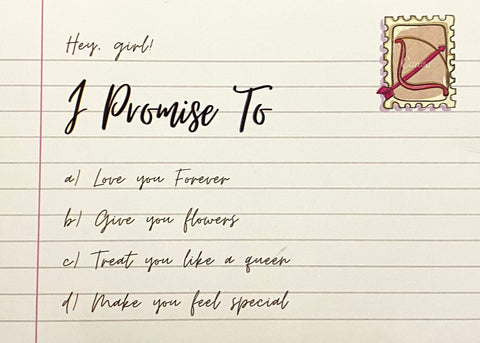 Hey, girl!
I Promise To
a) Love you Forever
b) Give you flowers
c) Treat you like a queen
d) Make you feel special